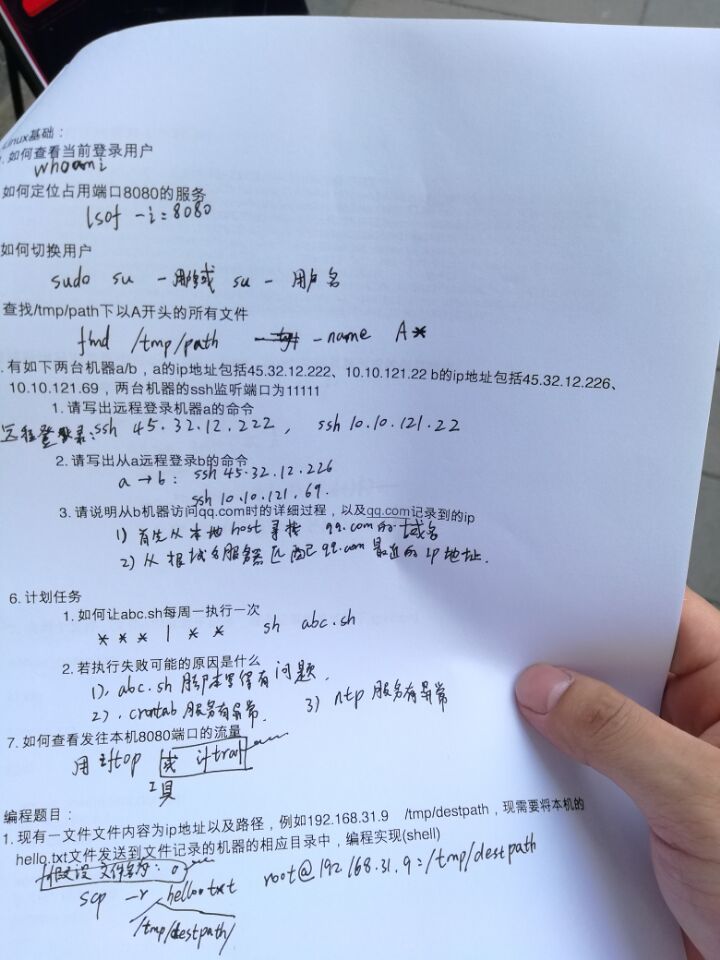 Linux基础：
如何查看当前登录用户
whoami
如何定位占用端口8080的服务
lsof -i:8080
如何切换用户
sudo su - 用户或 su - 用户名
查找/tmp/path下以A开头的所有文件
find /tmp/path -name A*
. 有如下两台机器a/b，a的ip地址包括45.32.12.222、10.10.121.22 b的ip地址包括45.32.12.226、
10.10.121.69，两台机器的ssh监听端口为11111
1. 请写出远程登录机器a的命令
远程登录：ssh 45.32.12.222, ssh 10.10.121.22
2. 请写出从a远程登录b的命令
a→b: ssh 45.32.12.226
ssh 10.10.121.69.
3. 请说明从b机器访问qq.com时的详细过程，以及qq.com记录到的ip
1) 首先从本地host寻找 qq.com的域名
2) 从根域名服务器匹配qq.com最近的ip地址.
6. 计划任务
1. 如何让abc.sh每周一执行一次
* * * 1 * * sh abc.sh
2. 若执行失败可能的原因是什么
1). abc.sh 脚本写得有问题.
2). crontab 服务有异常. 3) ntp 服务有异常
7. 如何查看发往本机8080端口的流量
用 iftop 或 iftraf
工具
编程题目：
1. 现有一文件文件内容为ip地址以及路径，例如192.168.31.9 /tmp/destpath，现需要将本机的
hello.txt文件发送到文件记录的机器的相应目录中，编程实现(shell)
假设文件名称：
scp -r hello.txt root@192.168.31.9:/tmp/destpath
/tmp/destpath/